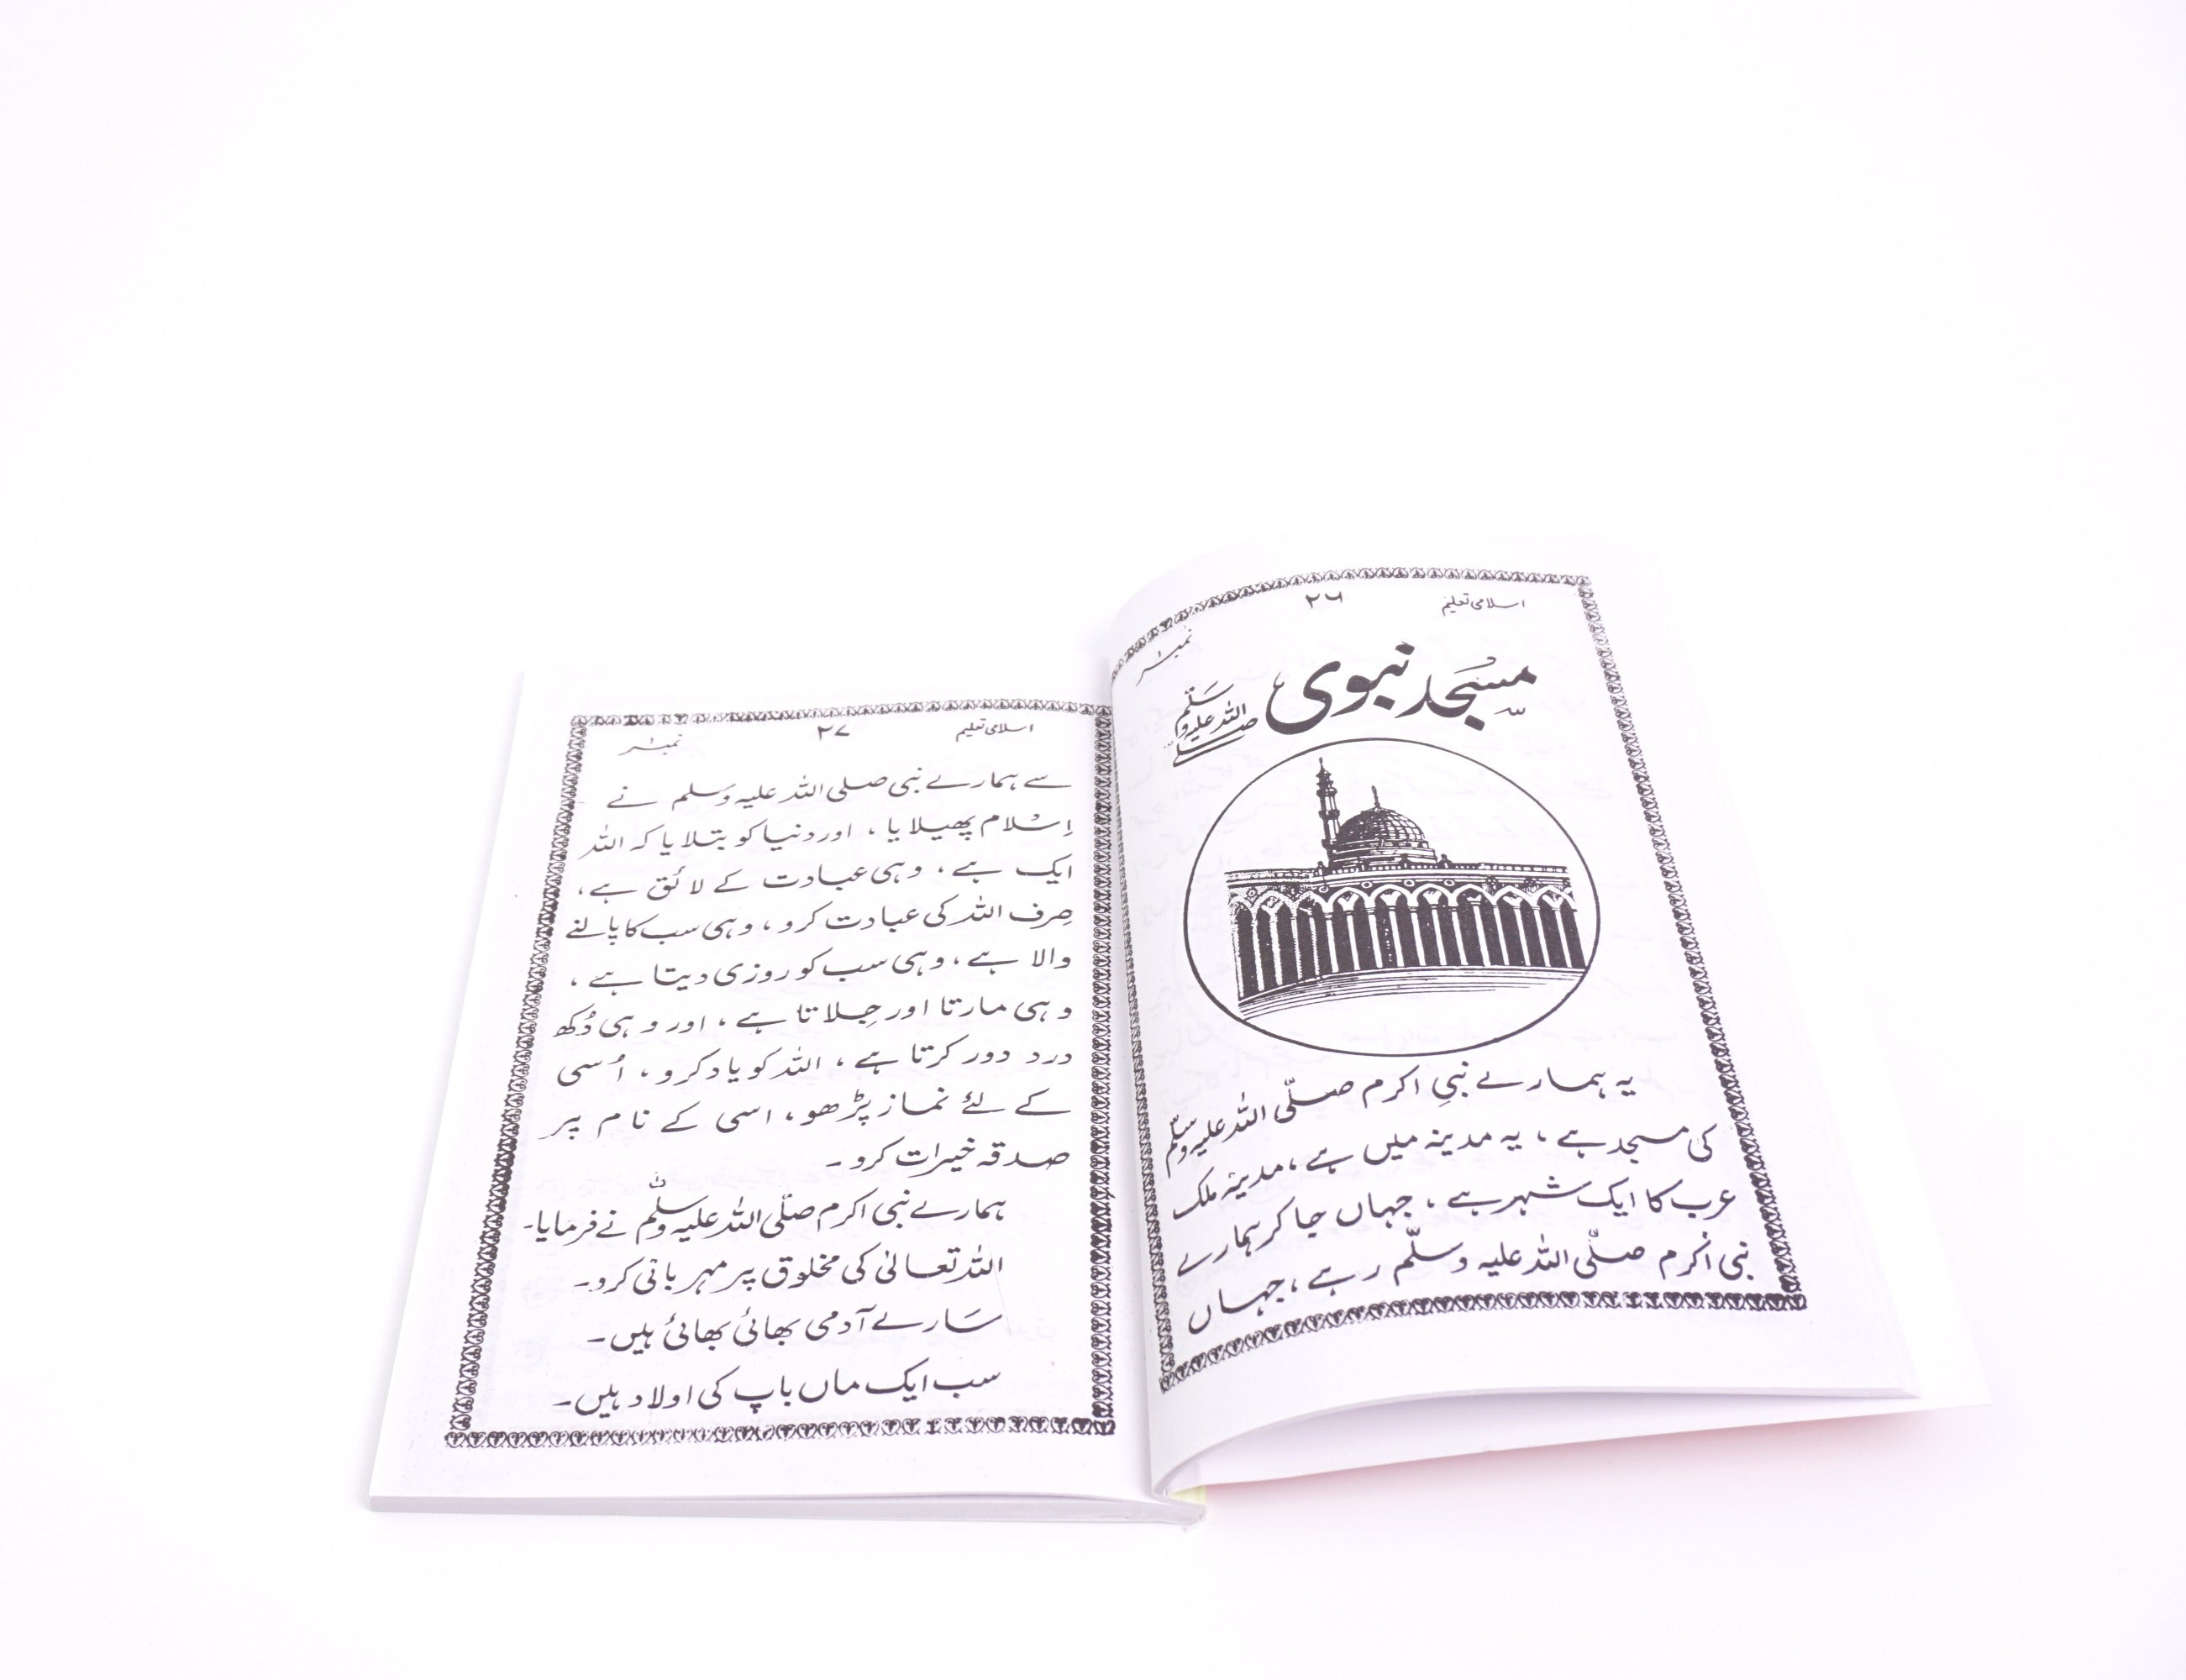 اسلامی تعلیم ۲۶ نمبر ۱
مسجد نبوی صلی اللہ علیہ وسلم
یہ ہمارے نبیِ اکرم صلّی اللہ علیہ وسلّم
کی مسجد ہے، یہ مدینہ میں ہے، مدینہ ملک
عرب کا ایک شہر ہے، جہاں جا کر ہمارے
نبی اکرم صلّی اللہ علیہ وسلّم رہے، جہاں
اسلامی تعلیم ۲۷ نمبر ۱
سے ہمارے نبی صلی اللہ علیہ وسلم نے
اِسْلام پھیلایا، اور دنیا کو بتلایا کہ اللہ
ایک ہے، وہی عبادت کے لائق ہے،
صِرف اللہ کی عبادت کرو، وہی سب کا پالنے
والا ہے، وہی سب کو روزی دیتا ہے،
وہی مارتا اور جِلاتا ہے، اور وہی دُکھ
درد دور کرتا ہے، اللہ کو یاد کرو، اُسی
کے لئے نماز پڑھو، اسی کے نام پر
صدقہ خیرات کرو۔
ہمارے نبی اکرم صلّی اللہ علیہ وسلّم نے فرمایا۔
اللہ تعالیٰ کی مخلوق پر مہربانی کرو۔
سَارے آدمی بھائی بھائی ہیں۔
سب ایک ماں باپ کی اولاد ہیں۔